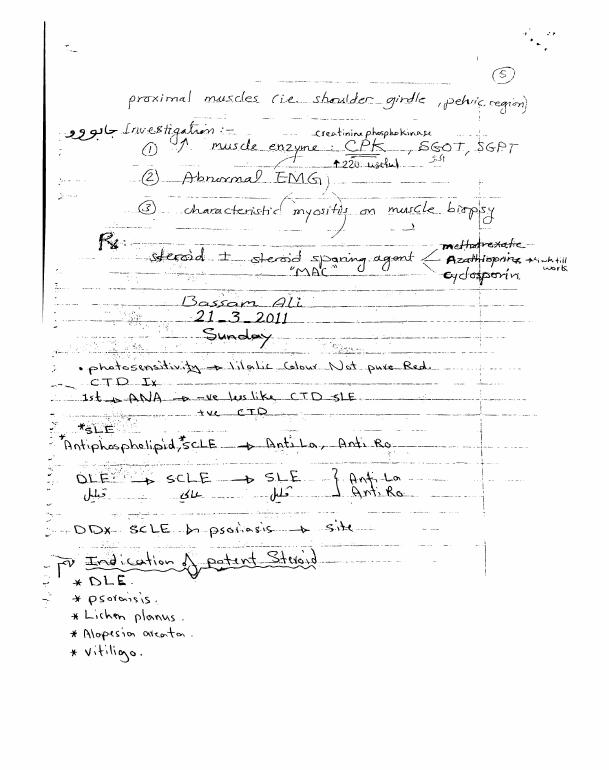 5
proximal muscles (i.e. shoulder girdle, pelvic region)
Investigation :-
creatinine phosphokinase
① ↑ muscle enzyme : CPK, SGOT, SGPT
↑ 220 useful
② Abnormal EMG
③ characteristic myositis on muscle biopsy
Rx:
steroid ± steroid sparing agent
"MAC"
methotrexate
Azathioprine →
work
cyclosporin
Bassam Ali
21_3_2011
Sunday
• photosensitivity → lilalic Colour Not pure Red.
CTD Ix
1st → ANA → -ve less like CTD SLE
+ve CTD
*SLE
*Antiphospholipid, *SCLE → Anti La, Anti Ro
DLE → SCLE → SLE } Anti La
Anti Ro
قليل عالى قليل
DDx SCLE → psoriasis → site
Indication of potent Steroid
* DLE.
* psoraisis.
* Lichen planus.
* Alopesia areata.
* Vitiligo.